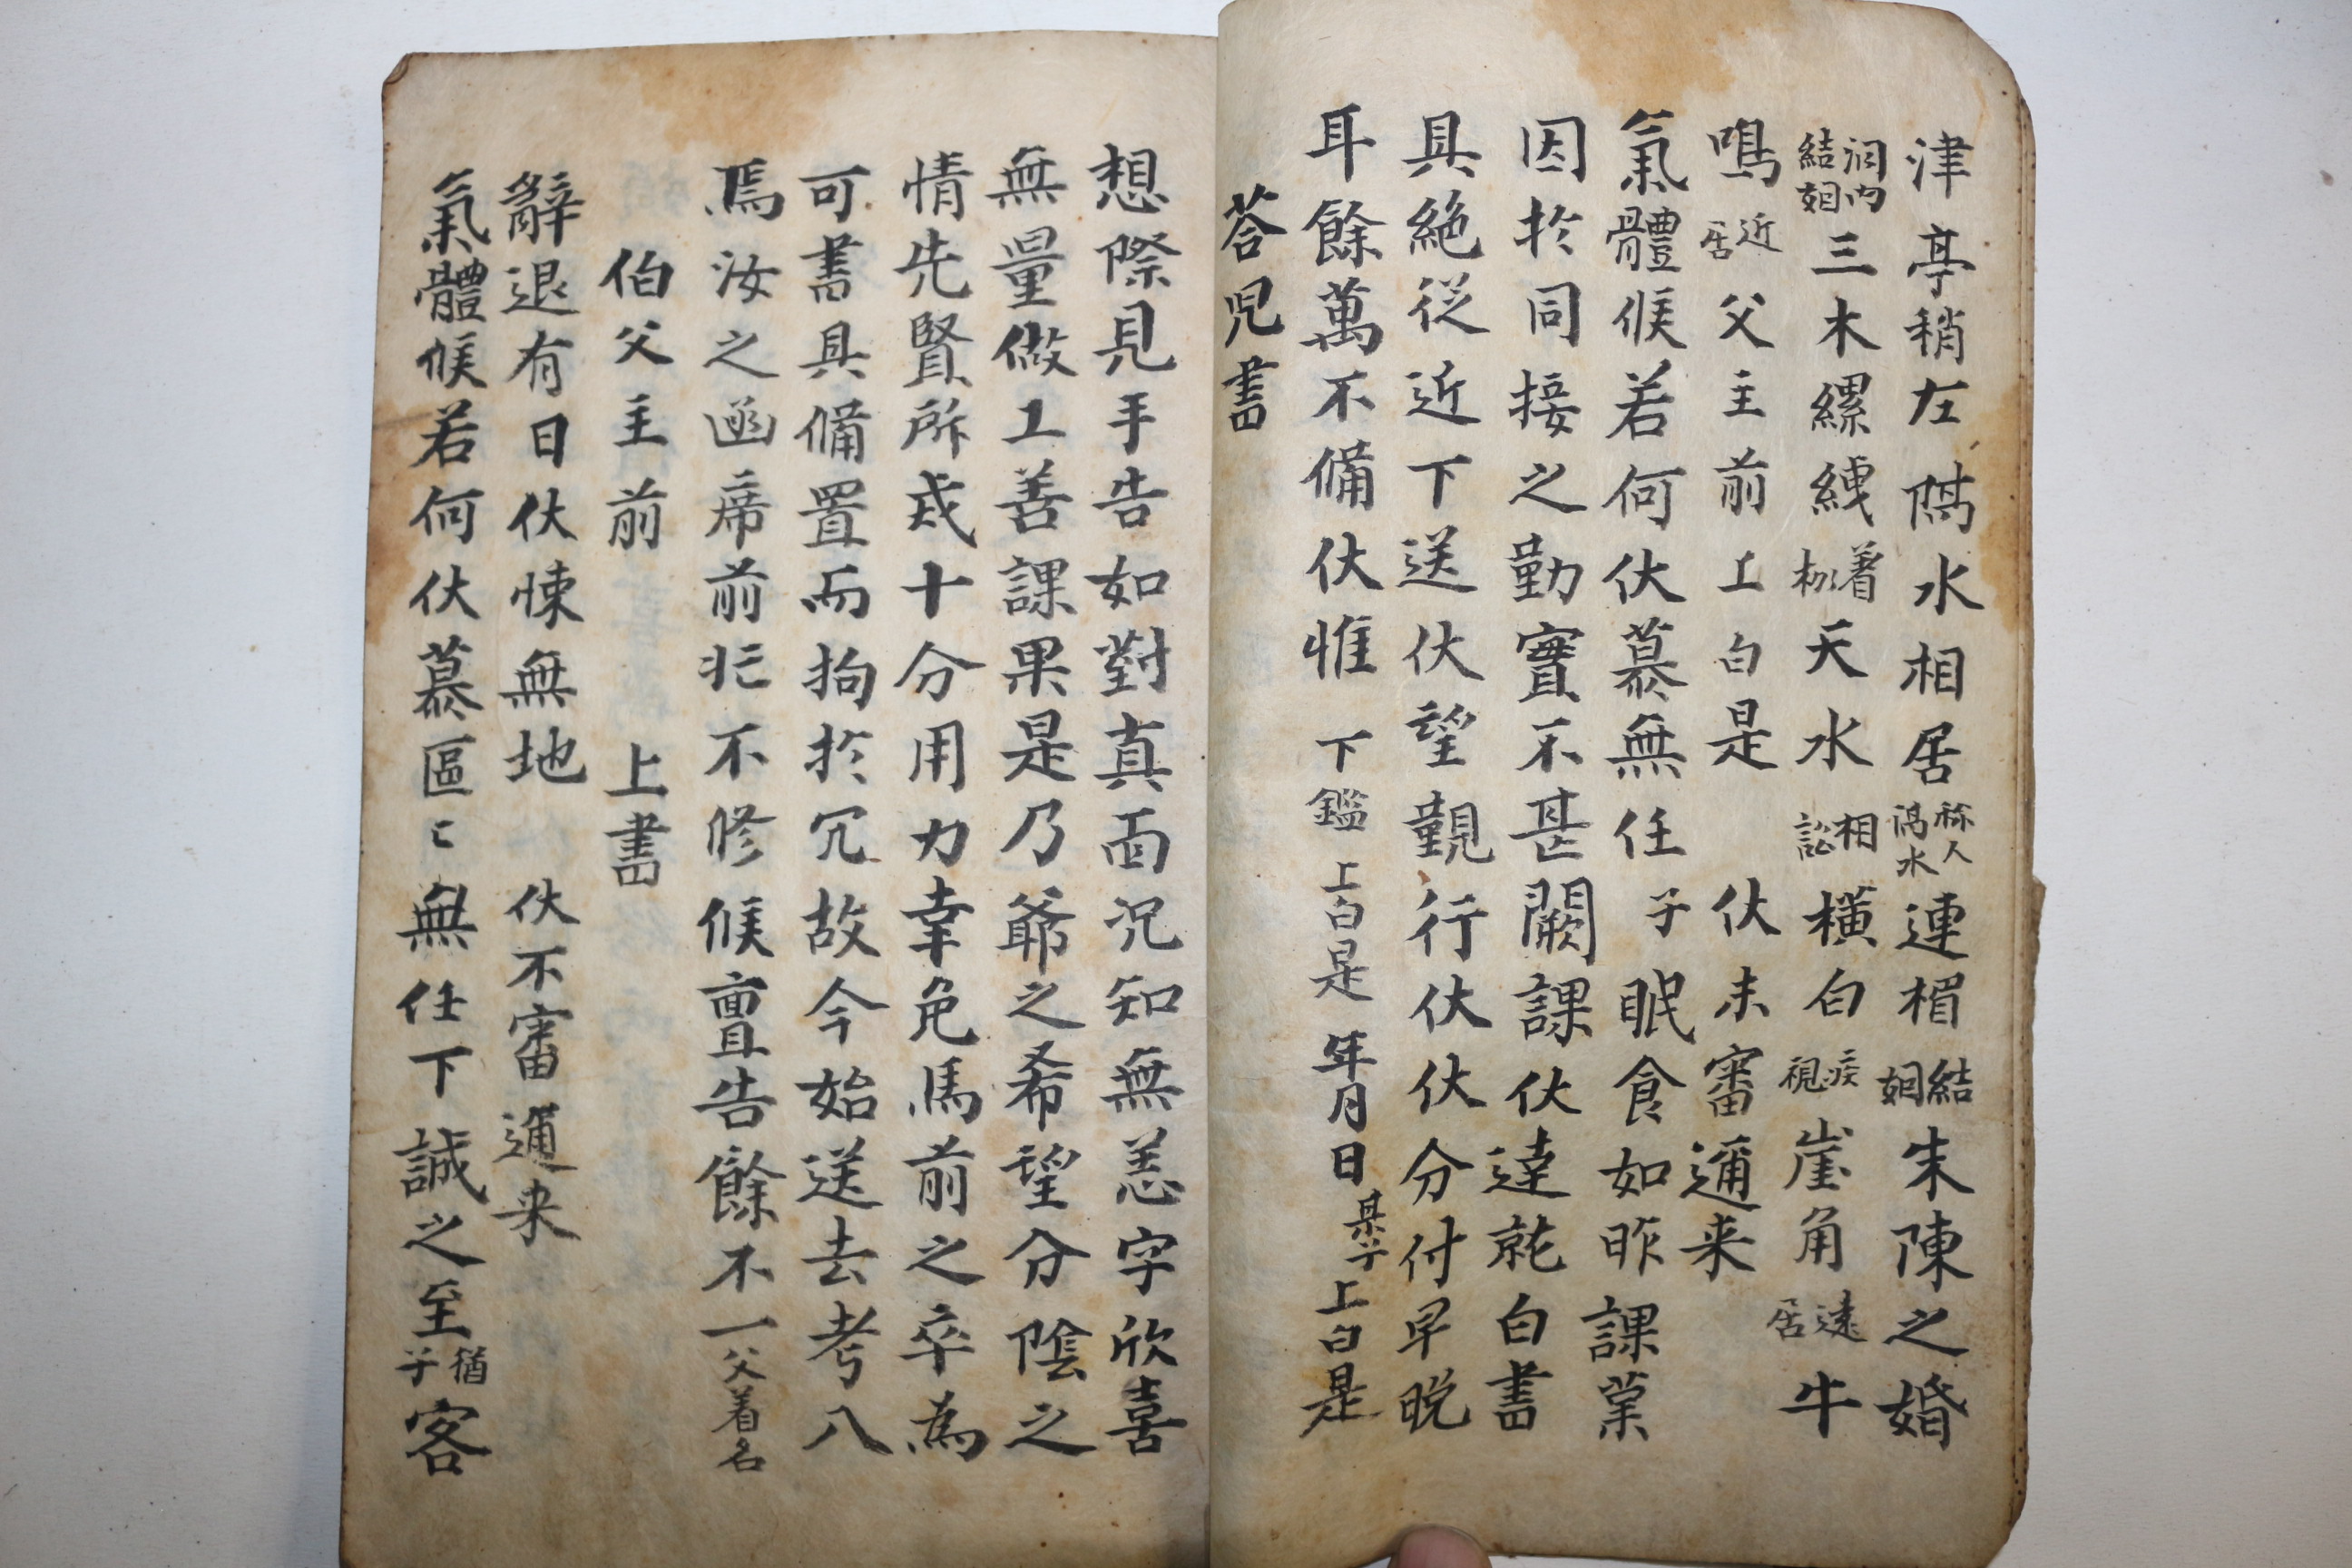 津亭稍左隔水相居称人渴水連楣結姻朱陳之婚
洞内結姻三木縲絏着枷天水相訟橫白疾視崖角遠居牛
鳴近居父主前上白是 伏未審邇来
氣體候若何伏慕無任子眠食如昨課業
因於同接之勤實不甚闕課伏達就白書
具絶從近下送伏望觀行伏伏分付早晩
耳餘萬不備伏惟 下鑑上白是 年月日某子上白是
答児書
想際見手告如對真面況知無恙字欣喜
無量做工善課果是乃爺之希望分陰之
情先賢所戒十分用力幸免馬前之卒為
可書具備置而拘於冗故今始送去考八
焉汝之函席前非不修候亶告餘不一父着名
伯父主前 上書
辭退有日伏悚無地 伏不審邇来
氣體候若何伏慕區〻無任下誠之至猶子客